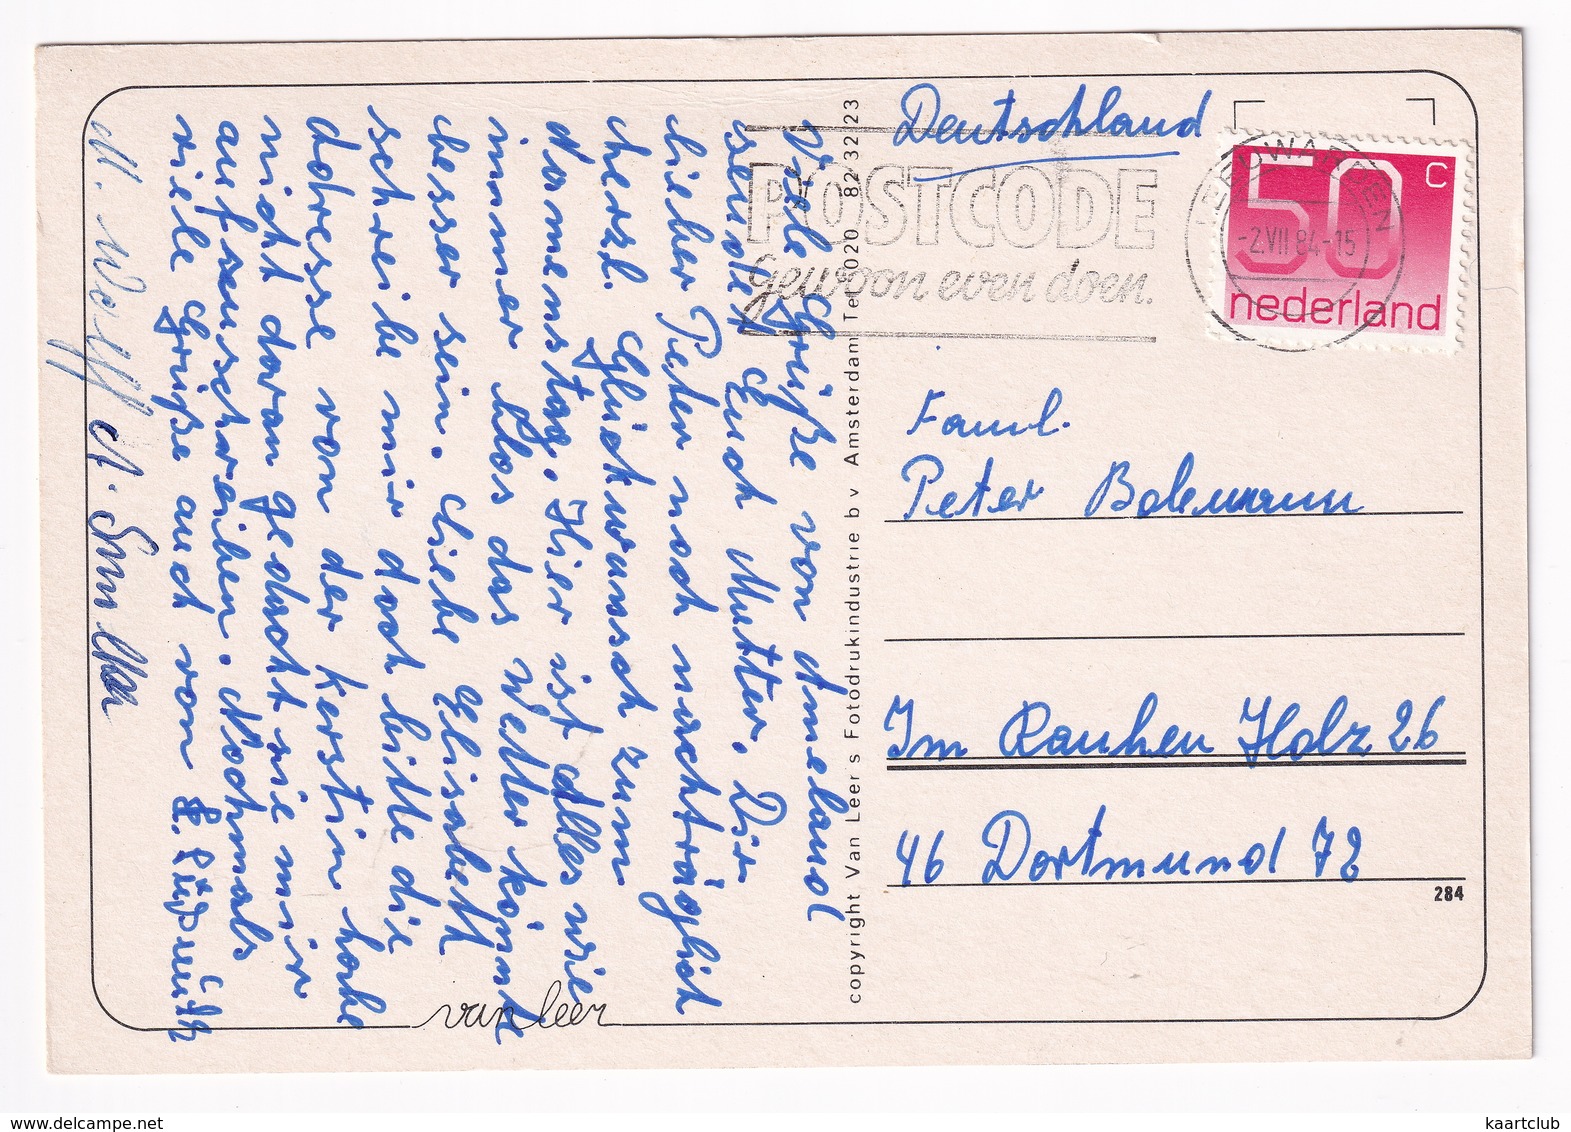 Viele Grüße von Ameland
sendet Euch Mutter. Dir
lieber Peter noch nachträglich
herzl. Glückwunsch zum
Namenstag. Hier ist alles wie
immer blos das Wetter könnte
besser sein. Liebe Elisabeth
schreibe mir doch bitte die
Adresse von der Kerstin habe
nicht daran gedacht sie mir
aufzuschreiben. Nochmals
viele Grüße auch von
M. Wolff A.
van leer
copyright Van Leer s Fotodrukindustrie b v Amsterdam Tel. 020 82 32 23
Deutschland
POSTCODE
gewoon even doen.
LEEUWARDEN
-2.VII 84-15
50 c
nederland
Famil.
Peter
Im Rauhen Holz 26
46 Dortmund 72
284
kaartclub